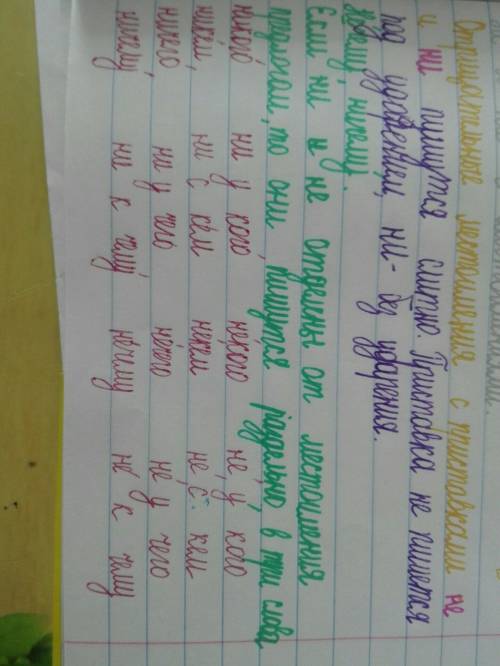 Отрицательные местоимения с приставками не
и ни пишутся слитно. Приставка не пишется
под ударением, ни - без ударения.
нечему, ничему.
Если ни и не отделены от местоимения
предлогом, то они пишутся раздельно в три слова
никого ни у кого некого не у кого
никем ни с кем некем не с кем
ничего ни у чего нечего не у чего
ничему ни к чему нечему не к чему